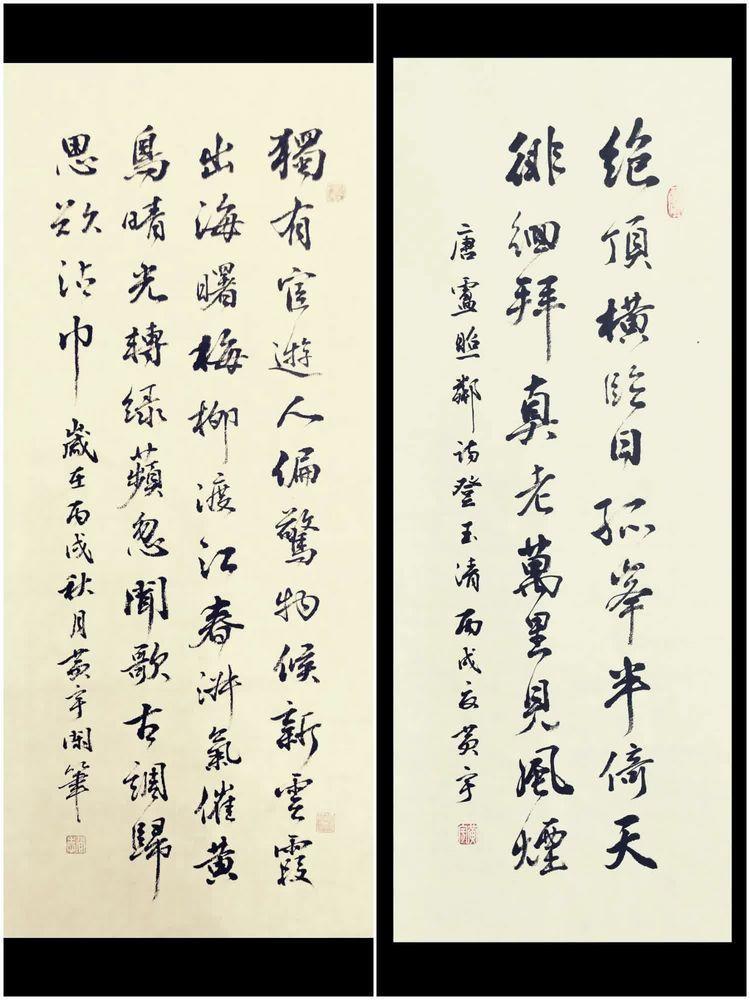 獨有宦遊人偏驚物候新雲霞
出海曙梅柳渡江春淑氣催黃
鳥晴光轉綠蘋忽聞歌古調歸
思欲沾巾 歲在丙戌秋月黃宇閑筆
絕頂橫臨日孤峯半倚天
徘徊拜真老萬里見風煙
唐盧照鄰詩登玉清 丙戌夏黃宇